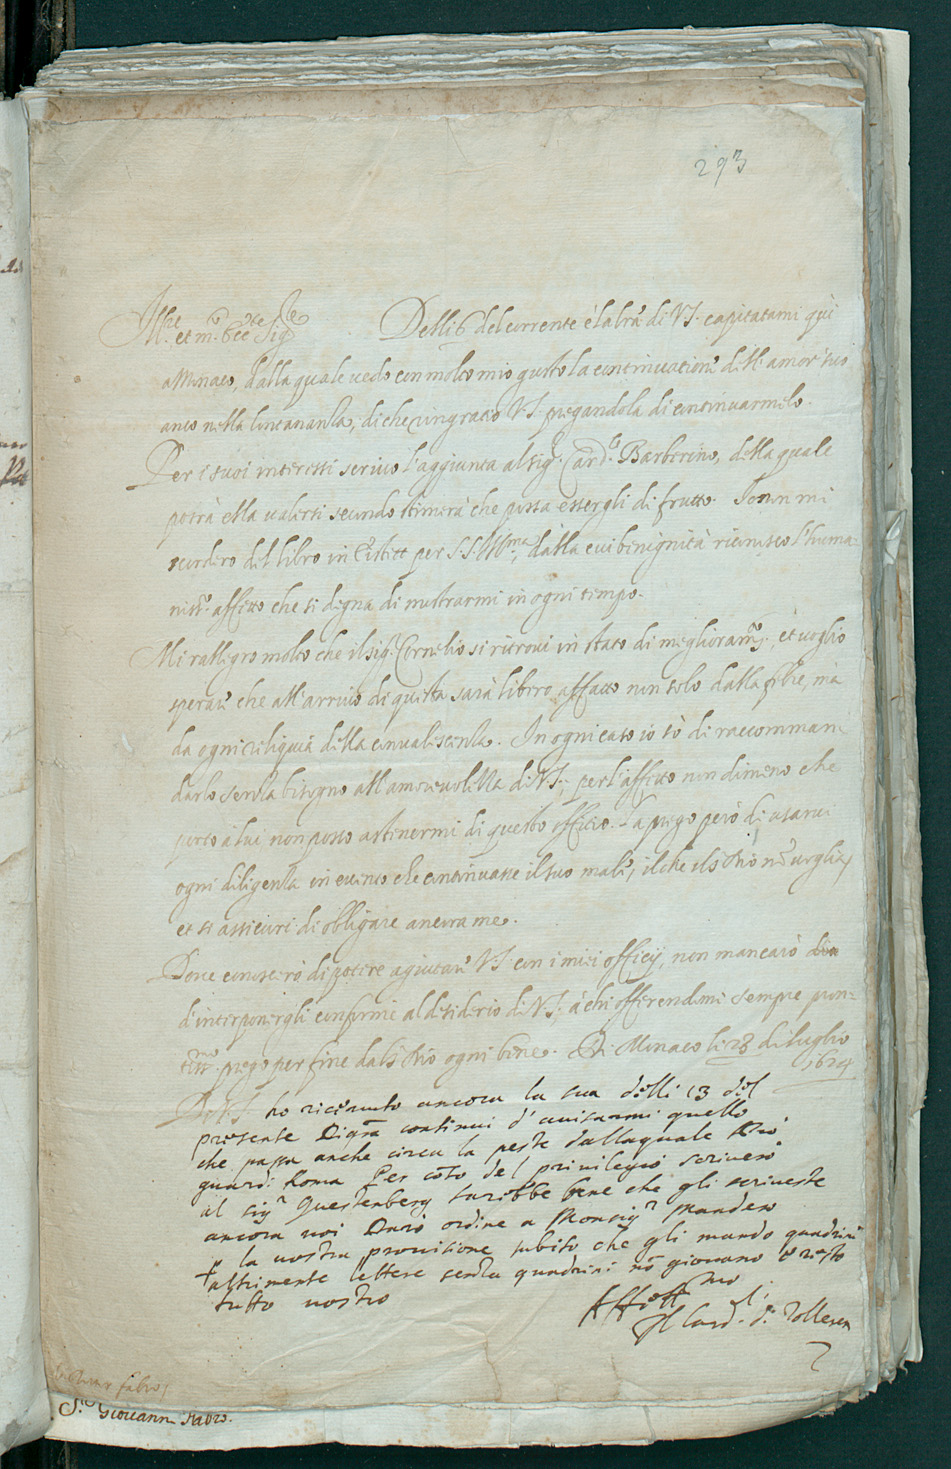 293
Ill.re et m.o Ecc.te Sig.re Delli 6 del corrente è la lrã di V.S. capitatami qui
a Monaco, dalla quale vedo con molto mio gusto la continuatione dell'amor suo
anco nella lontananza, di che ringratio V.S. pregandola di continuarmelo.
Per i suoi interessi scrivo l'aggiunta al Sig.r Card.le Barberino, della quale
potrà ella valersi secondo stimerà che possa essergli di frutto. Io non mi
scordero del libro in per S.S. Ill.ma, dalla cui benignità riconosco l'huma-
niss.o affetto che si degna di mostrarmi in ogni tempo.
Mi rallegro molto che il Sig.r Cornelio si ritrovi in stato di miglioram.to, et voglio
sperare che all'arrivo di questa sarà libero affatto non solo dalla febre, mà
da ogni reliquia della convalescenza. In ogni caso io sò di raccomman-
darlo senza bisogno all'amorevolezza di V.S., per l'affetto non dimeno che
porto à lui non posso astinermi di questo officio. La prego però di usarvi
ogni diligenza in evento che continuasse il suo male, il che Iddio nõ voglia,
et si assicuri di obligare ancora me.
Dove conoscerò di potere agiutare V.S. con i miei officij, non mancarò
d'interponergli conforme al desiderio di V.S. à chi offerendomi sempre pron-
tiss.mo prego per fine da Dio ogni bene. Di Monaco li 28 di luglio
1624
Di V.S. ho ricevuto ancora la sua delli 13 del
presente Di gra continui d'avisarmi quello
che passa anche circa la peste dallaquale Dio
guardi Roma Per cõto del privilegio scriverò
al sig.r Questenberg sarebbe bene che gli scriveste
ancora voi Darò ordine a Monsig.r mandero
la vostra provisione subito che gli mando quadrini
altrimente lettere senza quadrini nõ giovano e resto
tutto vostro
Affett.mo
Il Card. d. Zolleren
S.r Giovanni Fabro.